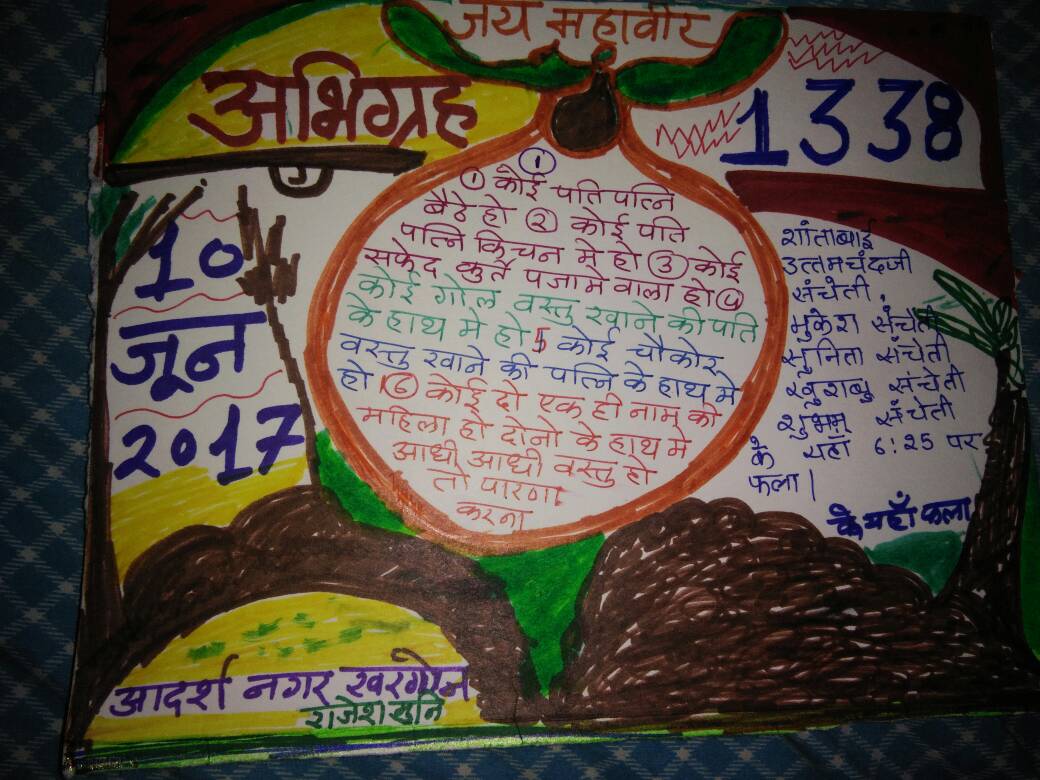 जय महावीर
अभिग्रह
1338
10
जून
2017
①
① कोई पति पत्नि
बैठे हो ② कोई पति
पत्नि किचन मे हो ③ कोई
सफेद कुर्ते पजामे वाला हो ④
कोई गोल वस्तु खाने की पति
के हाथ मे हो 5 कोई चौकोर
वस्तु खाने की पत्नि के हाथ मे
हो ⑥ कोई दो एक ही नाम की
महिला हो दोनो के हाथ मे
आधी आधी वस्तु हो
तो पारणा
करना
शांताबाई
उत्तमचंदजी
संचेती,
मुकेश संचेती
सुनिता संचेती
खुशबु संचेती
शुभम् संचेती
के यहाँ 6:25 पर
फला।
के यहाँ फला
आदर्श नगर खरगोन
राजेश मुनि